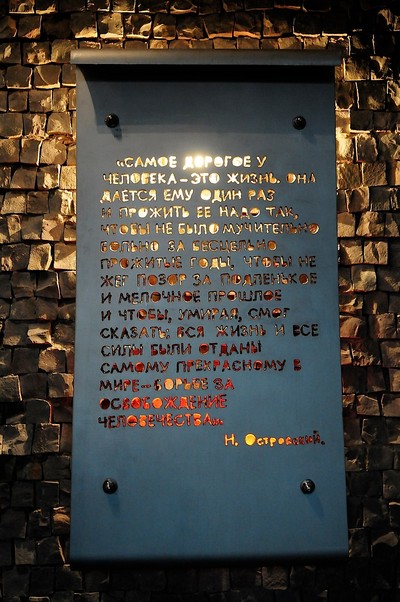 «САМОЕ ДОРОГОЕ У
ЧЕЛОВЕКА – ЭТО ЖИЗНЬ. ОНА
ДАЁТСЯ ЕМУ ОДИН РАЗ
И ПРОЖИТЬ ЕЕ НАДО ТАК,
ЧТОБЫ НЕ БЫЛО МУЧИТЕЛЬНО
БОЛЬНО ЗА БЕСЦЕЛЬНО
ПРОЖИТЫЕ ГОДЫ, ЧТОБЫ НЕ
ЖЕГ ПОЗОР ЗА ПОДЛЕНЬКОЕ
И МЕЛОЧНОЕ ПРОШЛОЕ
И ЧТОБЫ, УМИРАЯ, СМОГ
СКАЗАТЬ: ВСЯ ЖИЗНЬ И ВСЕ
СИЛЫ БЫЛИ ОТДАНЫ
САМОМУ ПРЕКРАСНОМУ В
МИРЕ – БОРЬБЕ ЗА
ОСВОБОЖДЕНИЕ
ЧЕЛОВЕЧЕСТВА».
Н. Островский.